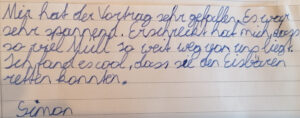 Mir hat der Vortrag sehr gefallen. Es war
sehr spannend. Erschreckt hat mich, dass
so viel Müll so weit weg von uns liegt.
Ich fand es cool, dass sie den Eisbären
retten konnten.
Simon